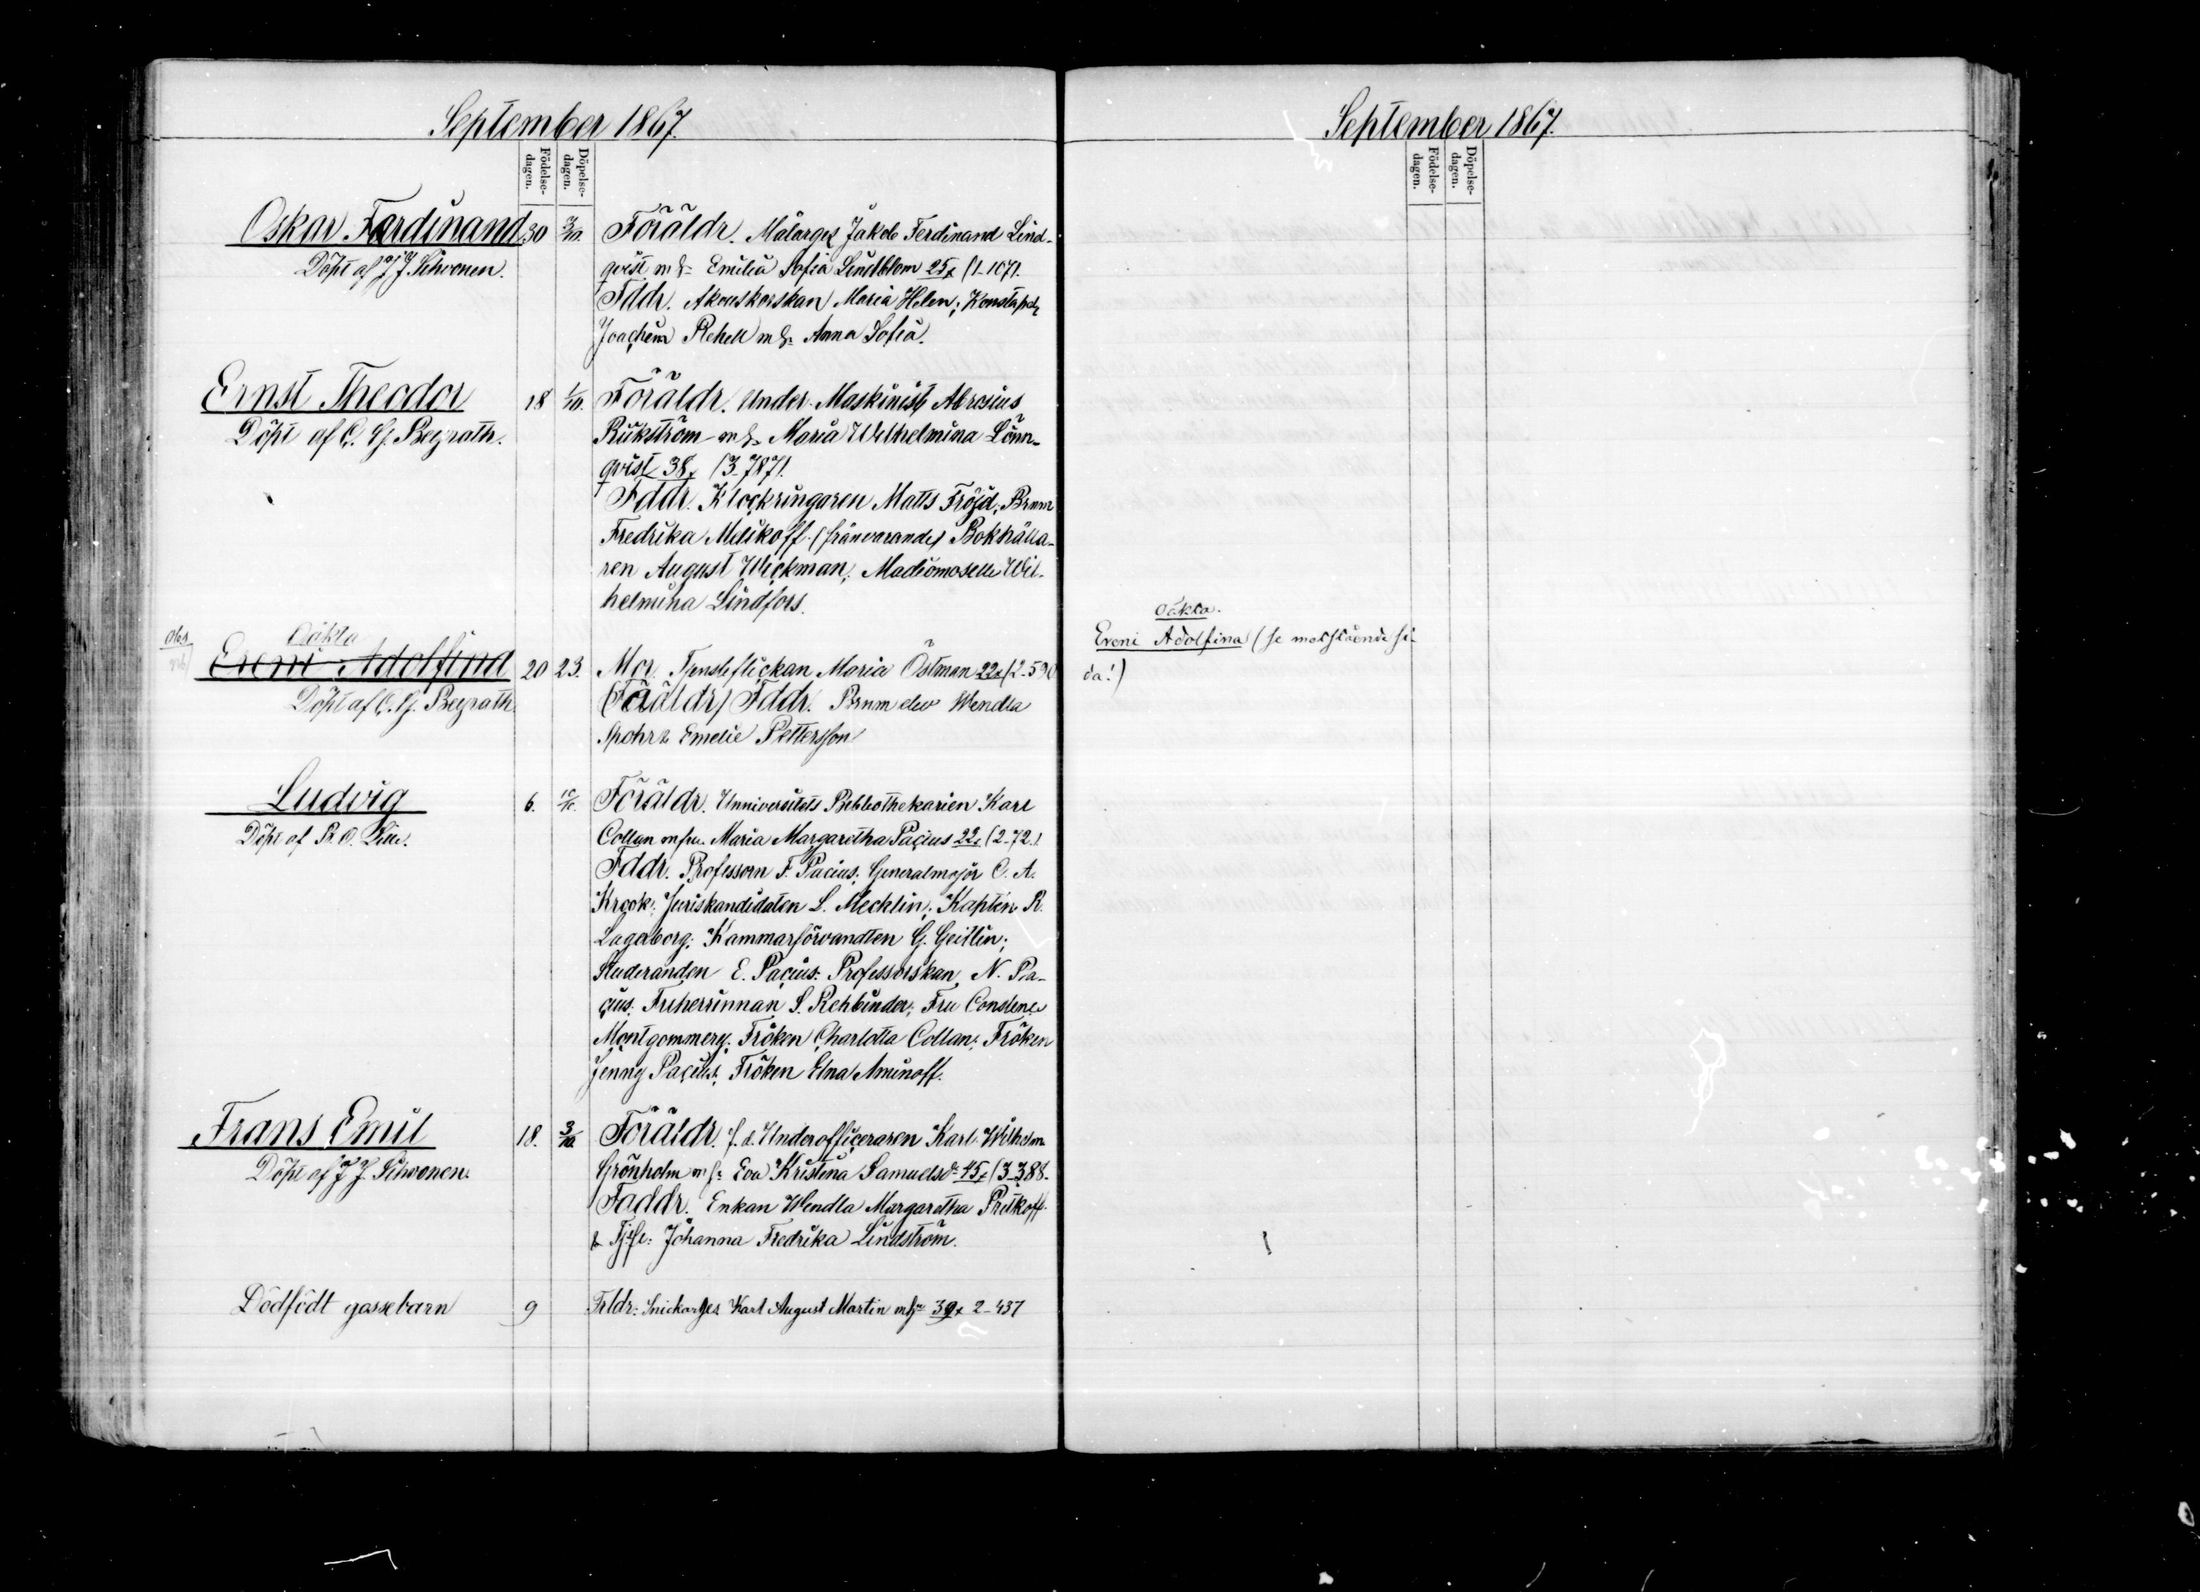 September 1867.
Födelse-
dagen.
Döpelse-
dagen.
Oskar Ferdinand 30 3/10. Föräldr. Målarges Jakob Ferdinand Lind-
Döpt af J J Sihvonen.
qvist m h Emilia Sofia Lindblom 25 (1-107).
Fddr. Akouskorskan Maria Helen; Konstapeln
Joachim Rehell m h Anna Sofia.
Ernst Theodor 18 1/10. Föräldr. Under-Maskinist
Döpt af C. G. Bergrath. Rikström m h Maria Wilhelmina Lönn-
qvist 38 (3-787).
Fddr. Klockringaren Matts Fröjd;
Fredrika Melikoff (frånvarande) Bokhålla-
ren August Wickman; Madmoselle Wil-
helmina Lindfors.
obs
Oäkta
Ereni Adolfina 20 23. Mor. Tjensteflickan Maria Östman 22 (2-590
Döpt af C. G. Bergrath. (Föräldr) Fddr. Wendla
Spohr & Emelie Pettersson
Ludvig 6. 10/10. Föräldr. Universitets Bibliothekarien Karl
Döpt af Collan m fru Maria Margaretha Pacius 22 (2-72.)
Fddr. Professorn F. Pacius; Generalmajor O. A.
Krook; Juriskandidaten L. Mechlin; Kapten R.
Lagerborg; Kammarförvandten G. Geitlin;
Studeranden E. Pacius; Professorskan N. Pa-
cius; Friherrinnan S. Rehbinder; Fru Constence
Montgommery; Fröken Charlotta Collan; Fröken
Jenny Pacius; Fröken Elna Aminoff.
Frans Emil 18. 3/10 Föräldr. f. d. Underofficeraren Karl Wilhelm
Döpt af J J Sihvonen. Grönholm m h Eva Kristina Samuelsdr 45 (3-388.
Faddr. Enkan Wendla Margaretha Pritkoff
& Tjfl: Johanna Fredrika Lindström.
Dödfödt gossebarn 9 Frldr: Snickarges Karl August Martin m hu 39 2-437
September 1867.
Födelse-
dagen.
Döpelse-
dagen.
Oäkta.
Ereni Adolfina (se motstående si-
da!)